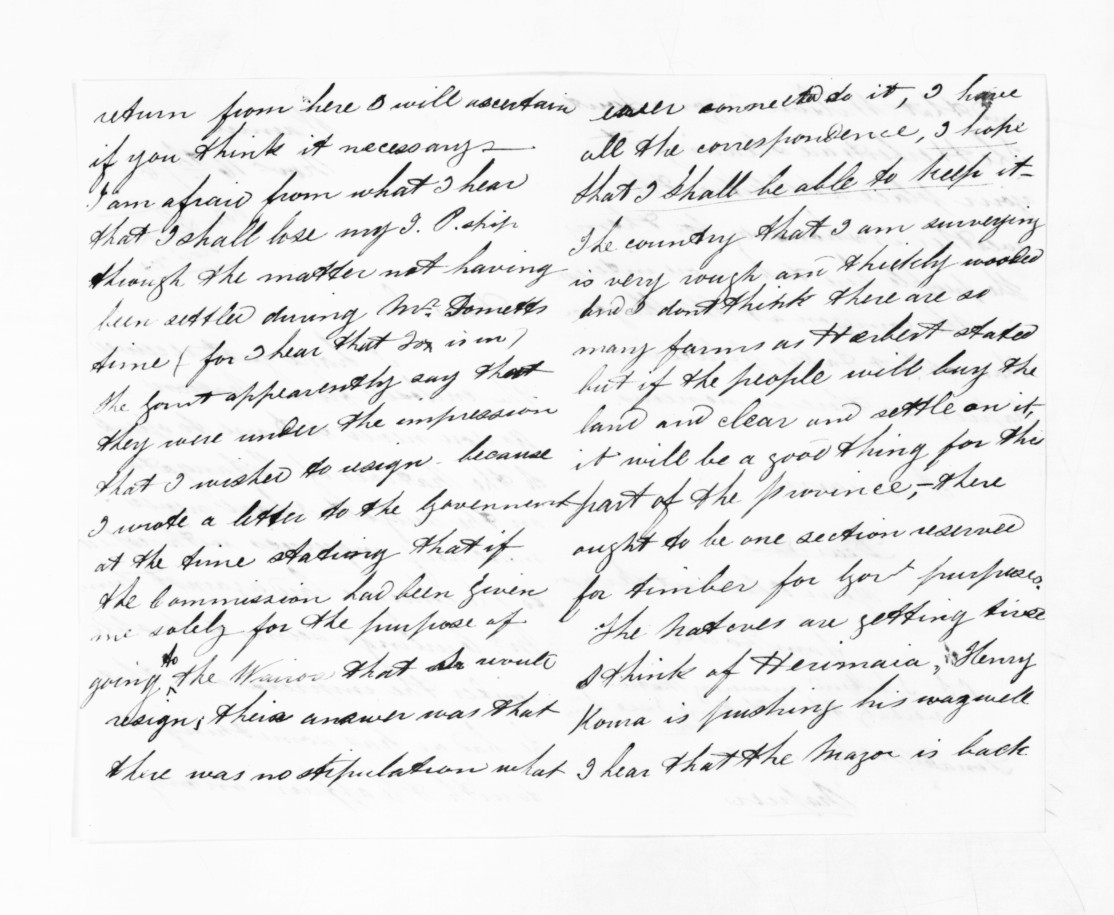 return from here I will ascertain
if you think it necessary –
I am afraid from what I hear
that I shall lose my J. P. ship
through the matter not having
been settled during Mr. Dometts
time (for I hear that Fox is in)
the Govnt apperently say that
they were under the impression
that I wished to resign because
I wrote a letter to the Government
at the time stating that if
the Commission had been given
me solely for the purpose of
going to the Wairoa that I would
resign; their answer was that
there was no stipulation what
ever connected to it, I have
all the correspondence, I hope
that I shall be able to keep it –
The country that I am surveying
is very rough and thickly wooded
and I dont think there are so
many farms as Herbert stated
but if the people will buy the
land and clear and settle on it,
it will be a good thing for this
part of the province, – there
ought to be one section reserved
for timber for Govt purposes.
The Natives are getting tired
I think of Herimaia, Henry
Koura is pushing his way well
I hear that the Major is back